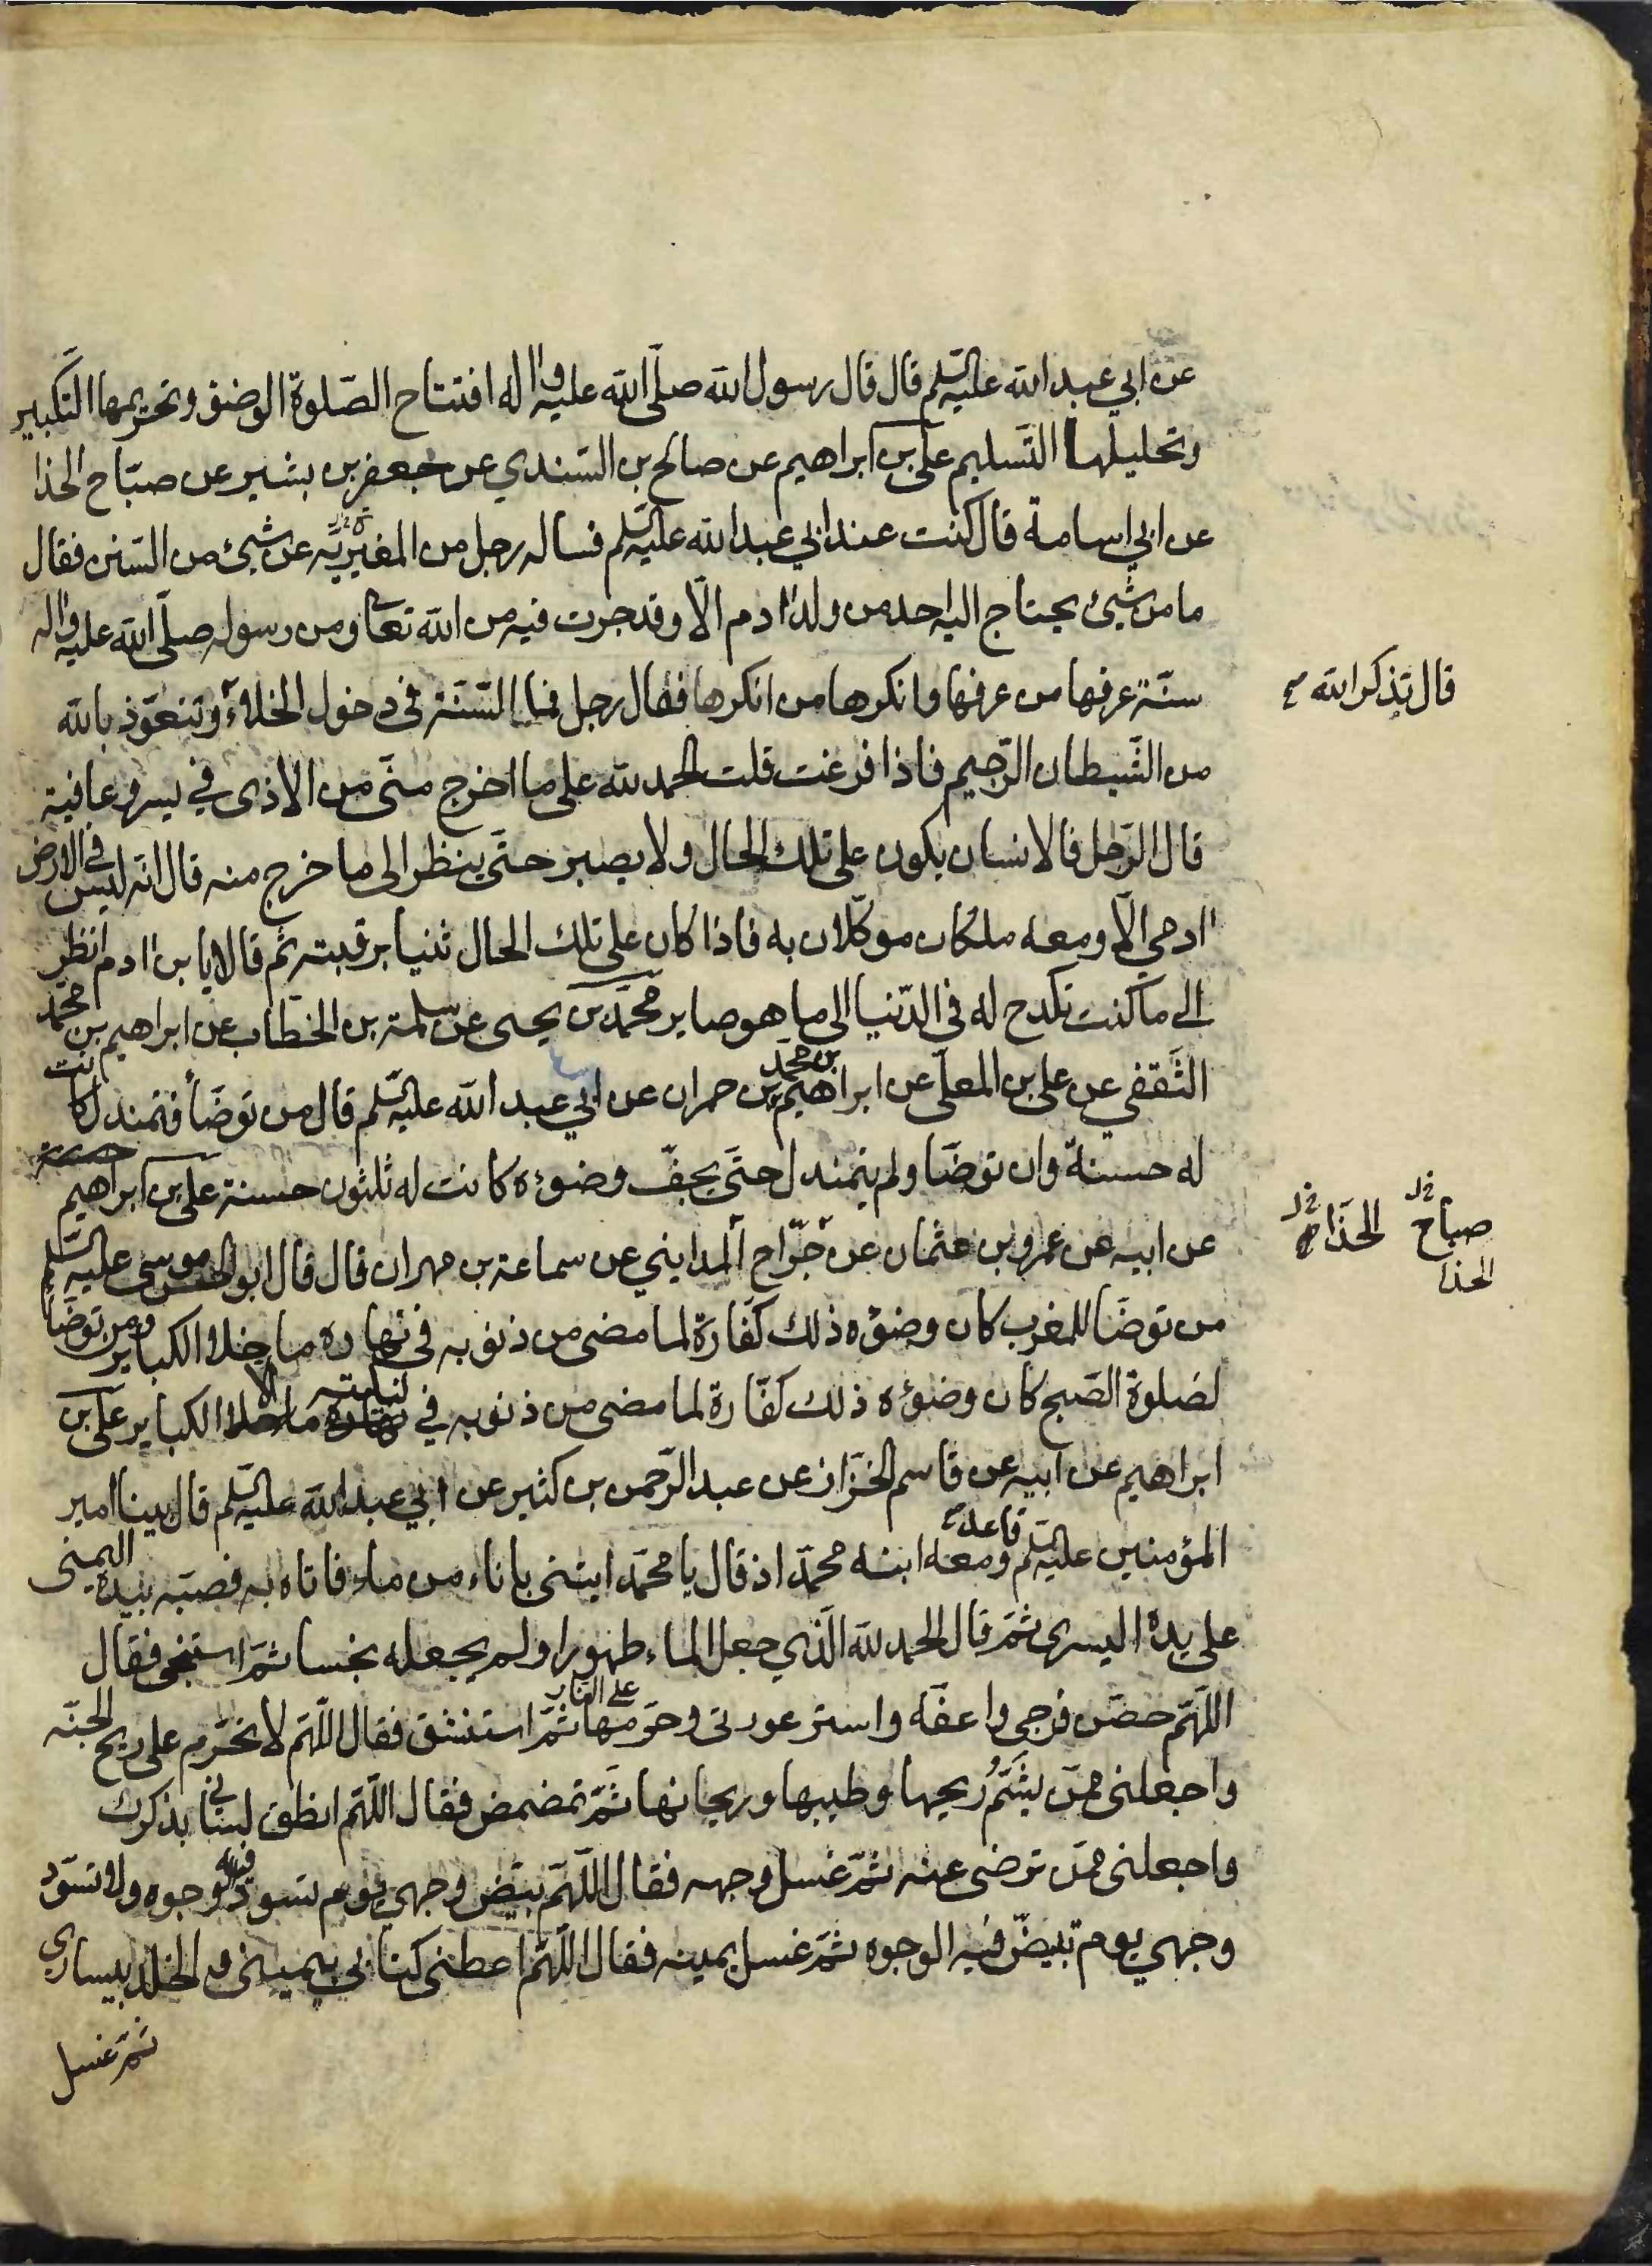 عن ابي عبد الله عليه السلم قال قال رسول الله صلى الله عليه واله افتتاح الصلوة الوضؤ وتحريمها التكبير
وتحليلها التسليم على بن ابراهيم عن صالح بن السندي عن جعفر بن بشير عن صباح الحذا
عن ابي اسامة قال كنت عند ابي عبد الله عليه السلم فساله رجل من المغيريه عن شيئ من السنن فقال
ما من شيئ يحتاج اليه احد من ولد ادم الا وقد جرت فيه من الله تعا ومن رسوله صلى الله عليه واله
سنة عرفها من عرفها وانكرها من انكرها فقال رجل فما السنة في دخول الخلاء وتتعوذ بالله
قال تذكر الله
من الشيطان الرجيم فاذا فرغت قلت الحمد لله على ما اخرج منى من الاذى في يسر وعافية
قال الرجل فالانسان يكون على تلك الحال ولا يصبر حتى ينظر الى ما خرج منه قال انه ليس في الارض
ادمي الا ومعه ملكان موكلان به فاذا كان على تلك الحال ثنيا برقبته ثم قالا يا بن ادم انظر
الى ما كنت تكدح له في الدنيا الى ما هو صاير محمد بن يحيى عن سلمة بن الخطاب عن ابراهيم بن محمد
الثقفي عن على بن المعلى عن ابراهيم بن محمد بن حمران عن ابي عبد الله عليه السلم قال من توضأ فتمندل كانت
له حسنة وان توضا ولم يتمندل حتى يجف وضوءه كانت له ثلثون حسنة على بن ابراهيم
صباح الحذا
الحذا
عن ابيه عن عمرو بن عثمان عن جراح المدايني عن سماعة بن مهران قال قال ابو الحسن موسى عليه السلم
من توضا للمغرب كان وضوءه ذلك كفارة لما مضى من ذنوبه في نهاره ما خلا الكباير ومن توضا
لصلوة الصبح كان وضوءه ذلك كفارة لما مضى من ذنوبه في ليلته الا الكباير على بن
ابراهيم عن ابيه عن قاسم الخزاز عن عبد الرحمن بن كثير عن ابي عبد الله عليه السلم قال بينا امير
المؤمنين عليه السلم قاعد ومعه ابنه محمد اذ قال يا محمد ايتنى باناء من ماء فاتاه به فصبه بيده اليمنى
على يده اليسرى ثم قال الحمد لله الذي جعل الماء طهورا ولم يجعله نجسا ثم استنجى فقال
اللهم حصن فرجي واعفه واستر عورتى وحرمها على النار ثم استنشق فقال اللهم لا تحرم على ريح الجنة
واجعلنى ممن يشم ريحها وطيبها وريحانها ثم تمضمض فقال اللهم انطق لسانى بذكرك
واجعلنى ممن ترضى عنه ثم غسل وجهه فقال اللهم بيض وجهي يوم تسود فيه الوجوه ولا تسود
وجهي يوم تبيض فيه الوجوه ثم غسل يمينه فقال اللهم اعطنى كتابي بيمينى والخلد بيساري
ثم غسل